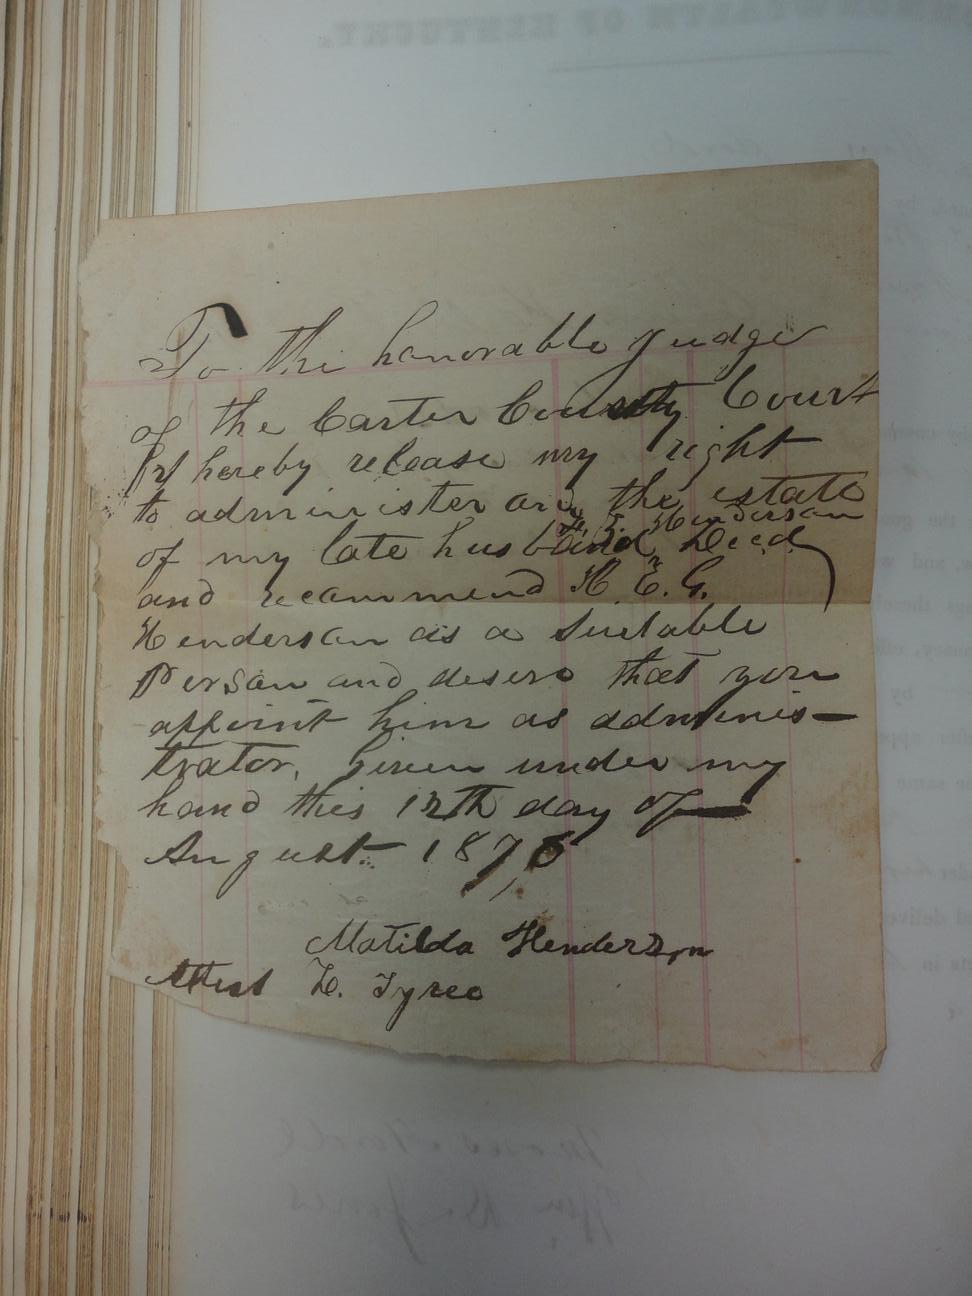 To the honorable Judge
of the Carter County Court
I hereby release my right
to administer on the estate
Henderson
of my late husband Decd
and recammend H. E. G.
Henderson as a Suitable
Person and desire that you
appoint him as adminis-
trator, Given under my
hand this 12th day of
August 1876
Matilda Henderson
Attest Z. Tyree